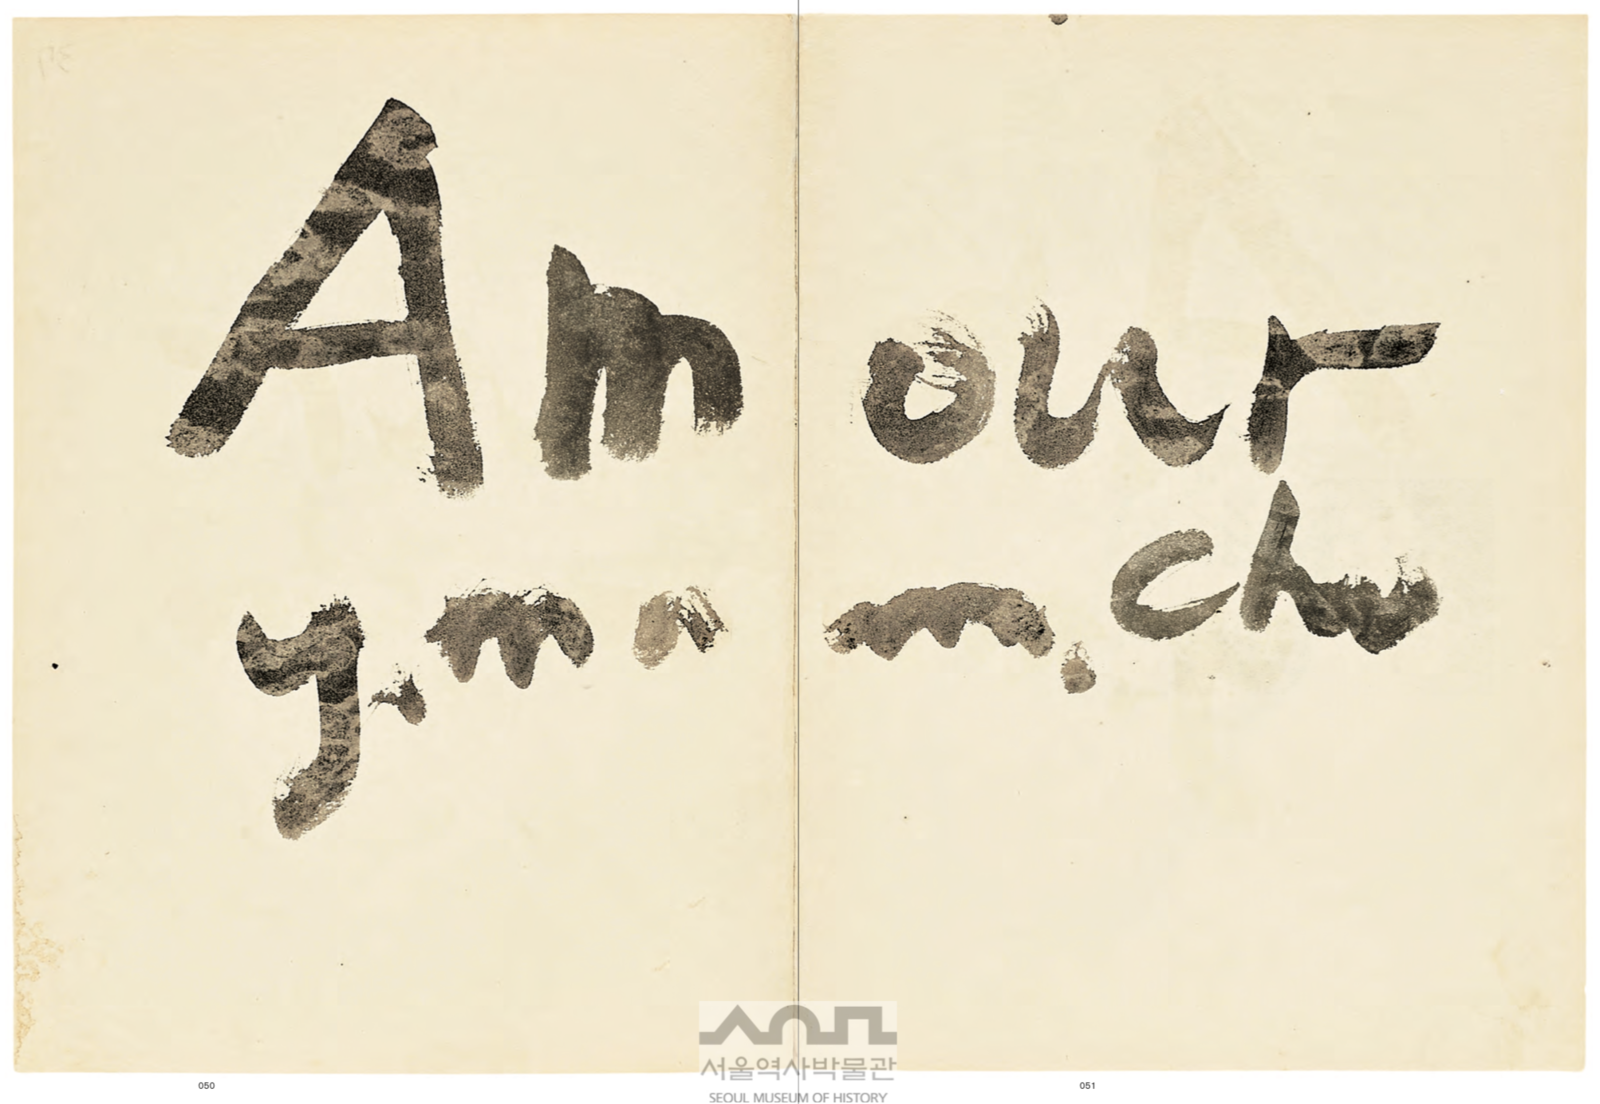 Amour
050
051
서울역사박물관
SEOUL MUSEUM OF HISTORY